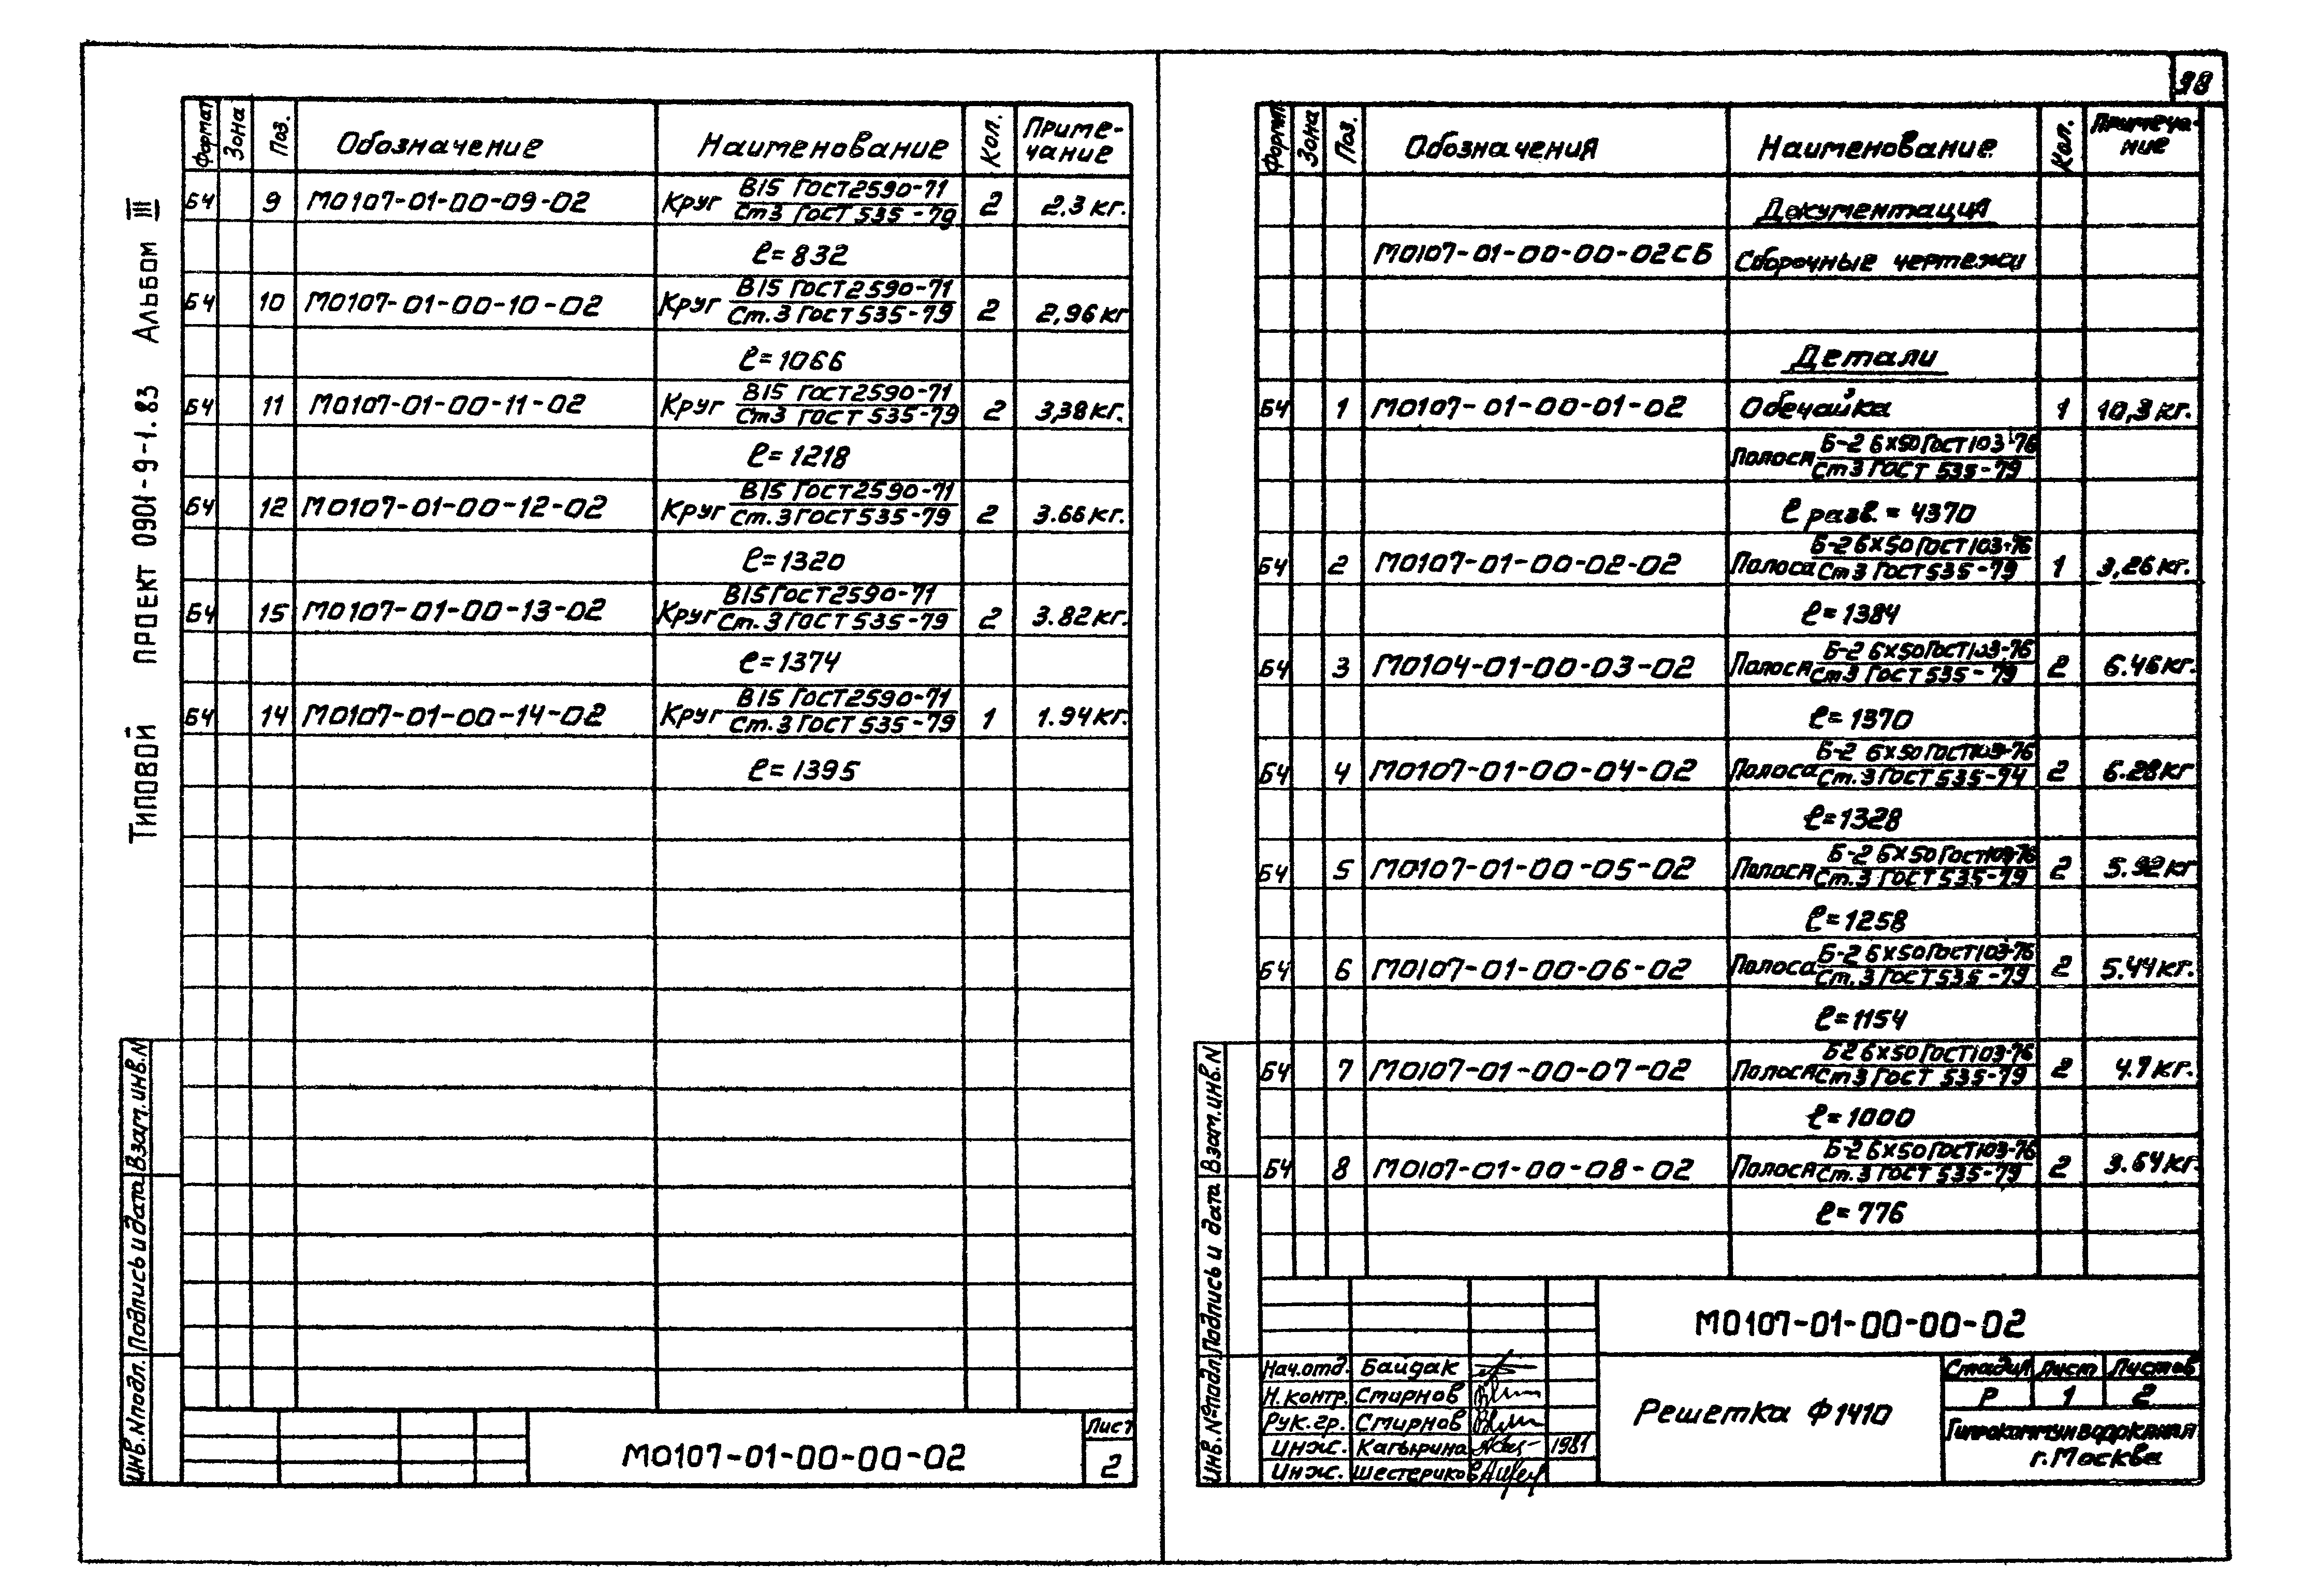 Типовой проект 0901-9-1.83 Альбом III
Формат Зона Поз. Обозначение Наименование Кол. Приме-
чание
Б4 9 М0107-01-00-09-02 Круг В15 ГОСТ2590-71 2 2,3 кг.
Ст3 ГОСТ 535-79
ℓ=832
Б4 10 М0107-01-00-10-02 Круг В15 ГОСТ2590-71 2 2,96 кг
Ст.3 ГОСТ 535-79
ℓ=1066
Б4 11 М0107-01-00-11-02 Круг В15 ГОСТ2590-71 2 3,38 кг.
Ст3 ГОСТ 535-79
ℓ=1218
Б4 12 М0107-01-00-12-02 Круг В15 ГОСТ2590-71 2 3.66 кг.
Ст.3 ГОСТ 535-79
ℓ=1320
Б4 15 М0107-01-00-13-02 Круг В15 ГОСТ2590-71 2 3.82 кг.
Ст.3 ГОСТ 535-79
ℓ=1374
Б4 14 М0107-01-00-14-02 Круг В15 ГОСТ2590-71 1 1.94 кг.
Ст.3 ГОСТ 535-79
ℓ=1395
Инв.N подл. Подпись и дата Взам.инв.N
М0107-01-00-00-02
Лист
2
98
Формат Зона Поз. Обозначения Наименование Кол. Примеча-
ние
Документация
М0107-01-00-00-02СБ Сборочные чертежи
Детали
Б4 1 М0107-01-00-01-02 Обечайка 1 10,3 кг.
Полоса Б-2 6х50 ГОСТ103-76
Ст3 ГОСТ 535-79
ℓ разв. = 4370
Б4 2 М0107-01-00-02-02 Полоса Б-2 6х50 ГОСТ103-76 1 3,26 кг.
Ст3 ГОСТ 535-79
ℓ=1384
Б4 3 М0104-01-00-03-02 Полоса Б-2 6х50 ГОСТ103-76 2 6.46 кг.
Ст3 ГОСТ 535-79
ℓ=1370
Б4 4 М0107-01-00-04-02 Полоса Б-2 6х50 ГОСТ103-76 2 6.28 кг
Ст.3 ГОСТ 535-74
ℓ=1328
Б4 5 М0107-01-00-05-02 Полоса Б-2 6х50 ГОСТ103-76 2 5.92 кг
Ст.3 ГОСТ 535-79
ℓ=1258
Б4 6 М0107-01-00-06-02 Полоса Б-2 6х50 ГОСТ103-76 2 5.44 кг.
Ст.3 ГОСТ 535-79
ℓ=1154
Б4 7 М0107-01-00-07-02 Полоса Б2 6х50 ГОСТ103-76 2 4.7 кг.
Ст3 ГОСТ 535-79
ℓ=1000
Б4 8 М0107-01-00-08-02 Полоса Б-2 6х50 ГОСТ103-76 2 3.64 кг.
Ст.3 ГОСТ 535-79
ℓ=776
Инв.№подл. Подпись и дата Взам.инв.N
М0107-01-00-00-02
Нач.отд. Байдак
Н.контр. Смирнов
Рук.гр. Смирнов
Инж. Кагырина 1981
Инж. Шестериков
Решетка Ф1410
Стадия Лист Листов
Р 1 2
Гипрокоммунводоканал
г.Москва